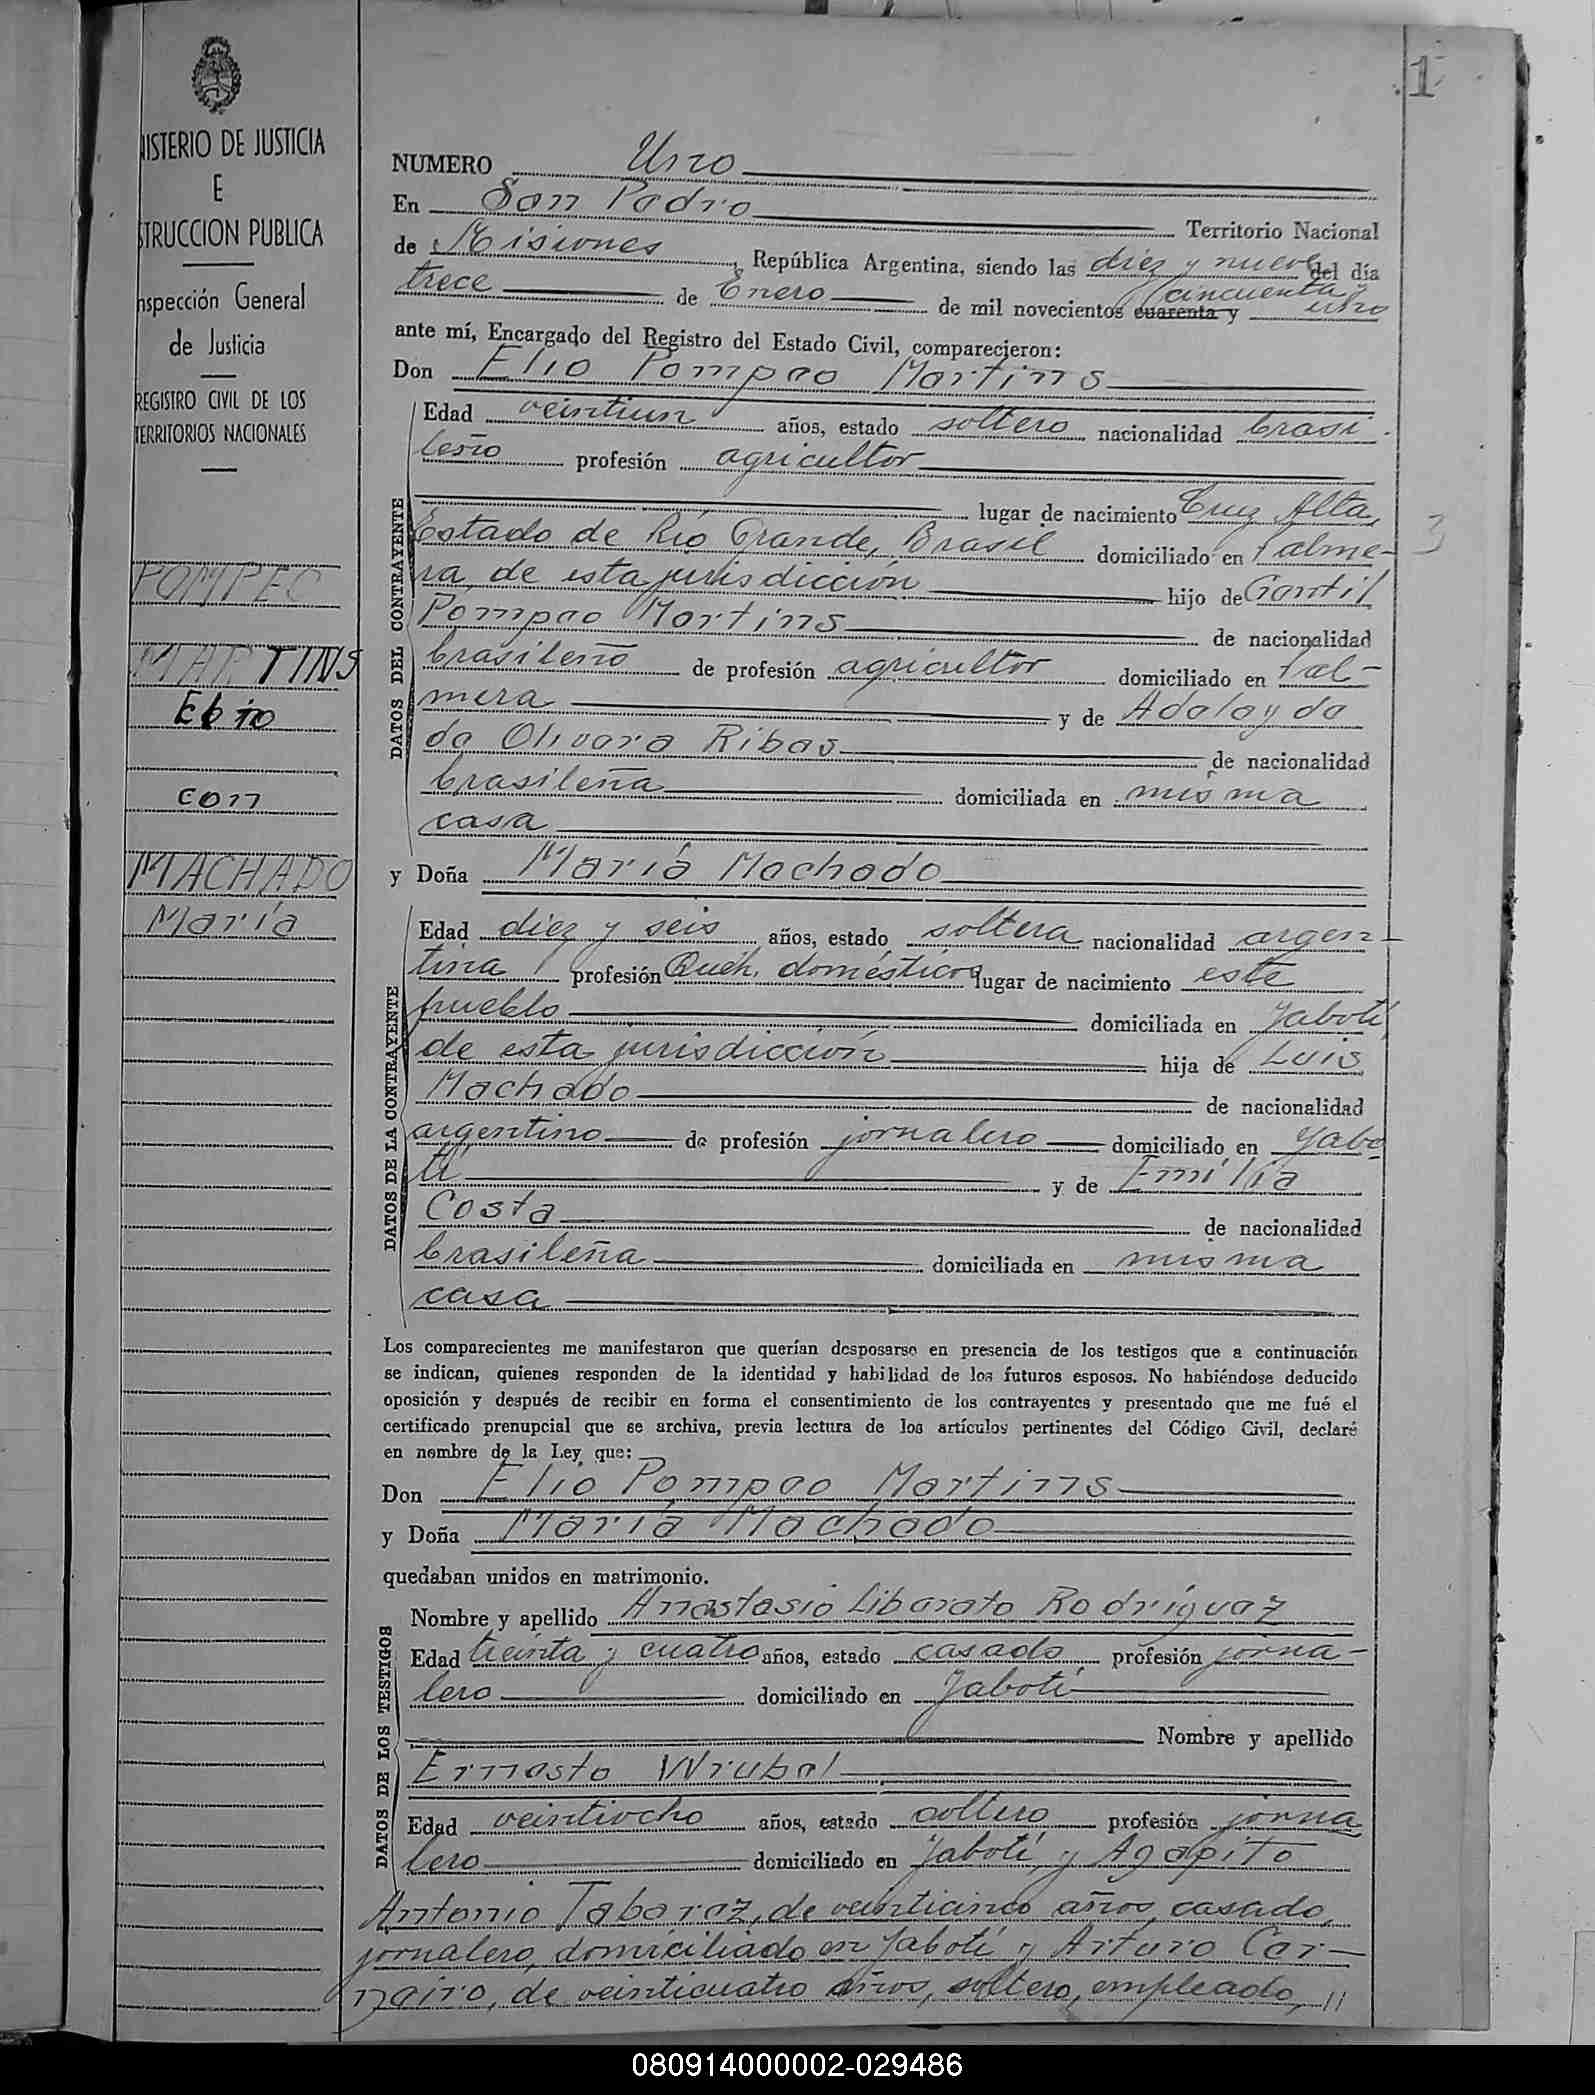 1
NISTERIO DE JUSTICIA
E
STRUCCION PUBLICA
nspección General
de Justicia
REGISTRO CIVIL DE LOS
TERRITORIOS NACIONALES
POMPEO
MARTINS
Elio
con
MACHADO
María
NUMERO Uno
En San Pedro Territorio Nacional
de Misiones, República Argentina, siendo las diez y nueve del día
trece de Enero de mil novecientos cuarenta y cincuenta uno
ante mí, Encargado del Registro del Estado Civil, comparecieron:
Don Elio Pompeo Martins
DATOS DEL CONTRAYENTE
Edad veintiun años, estado soltero nacionalidad brasi
leño profesión agricultor
lugar de nacimiento Cruz Alta,
3
Estado de Río Grande, Brasil domiciliado en Palme-
ra, de esta jurisdicción hijo de Gentil
Pompeo Martins de nacionalidad
brasileño de profesión agricultor domiciliado en Pal-
mera y de Adelayda
de Olivera Ribas de nacionalidad
brasileña domiciliada en misma
casa
y Doña María Machado
DATOS DE LA CONTRAYENTE
Edad diez y seis años, estado soltera nacionalidad argen-
tina profesión Queh. domésticos lugar de nacimiento este
pueblo domiciliada en Yabotí,
de esta jurisdicción hija de Luis
Machado de nacionalidad
argentino de profesión jornalero domiciliado en Yabo
tí y de Emilia
Costa de nacionalidad
brasileña domiciliada en misma
casa
Los comparecientes me manifestaron que querían desposarse en presencia de los testigos que a continuación
se indican, quienes responden de la identidad y habilidad de los futuros esposos. No habiéndose deducido
oposición y después de recibir en forma el consentimiento de los contrayentes y presentado que me fué el
certificado prenupcial que se archiva, previa lectura de los artículos pertinentes del Código Civil, declaré
en nombre de la Ley, que:
Don Elio Pompeo Martins
y Doña María Machado
quedaban unidos en matrimonio.
DATOS DE LOS TESTIGOS
Nombre y apellido Anastasio Liberato Rodríguez
Edad treinta y cuatro años, estado casado profesión jorna-
lero domiciliado en Yabotí
Nombre y apellido
Ernesto Wrubel
Edad veintiocho años, estado soltero profesión jorna
lero domiciliado en Yabotí, y Agapito
Antonio Taborez, de veinticinco años, casado,
jornalero, domiciliado en Yabotí y Arturo Car-
neiro, de veinticuatro años, soltero, empleado, //
080914000002-029486